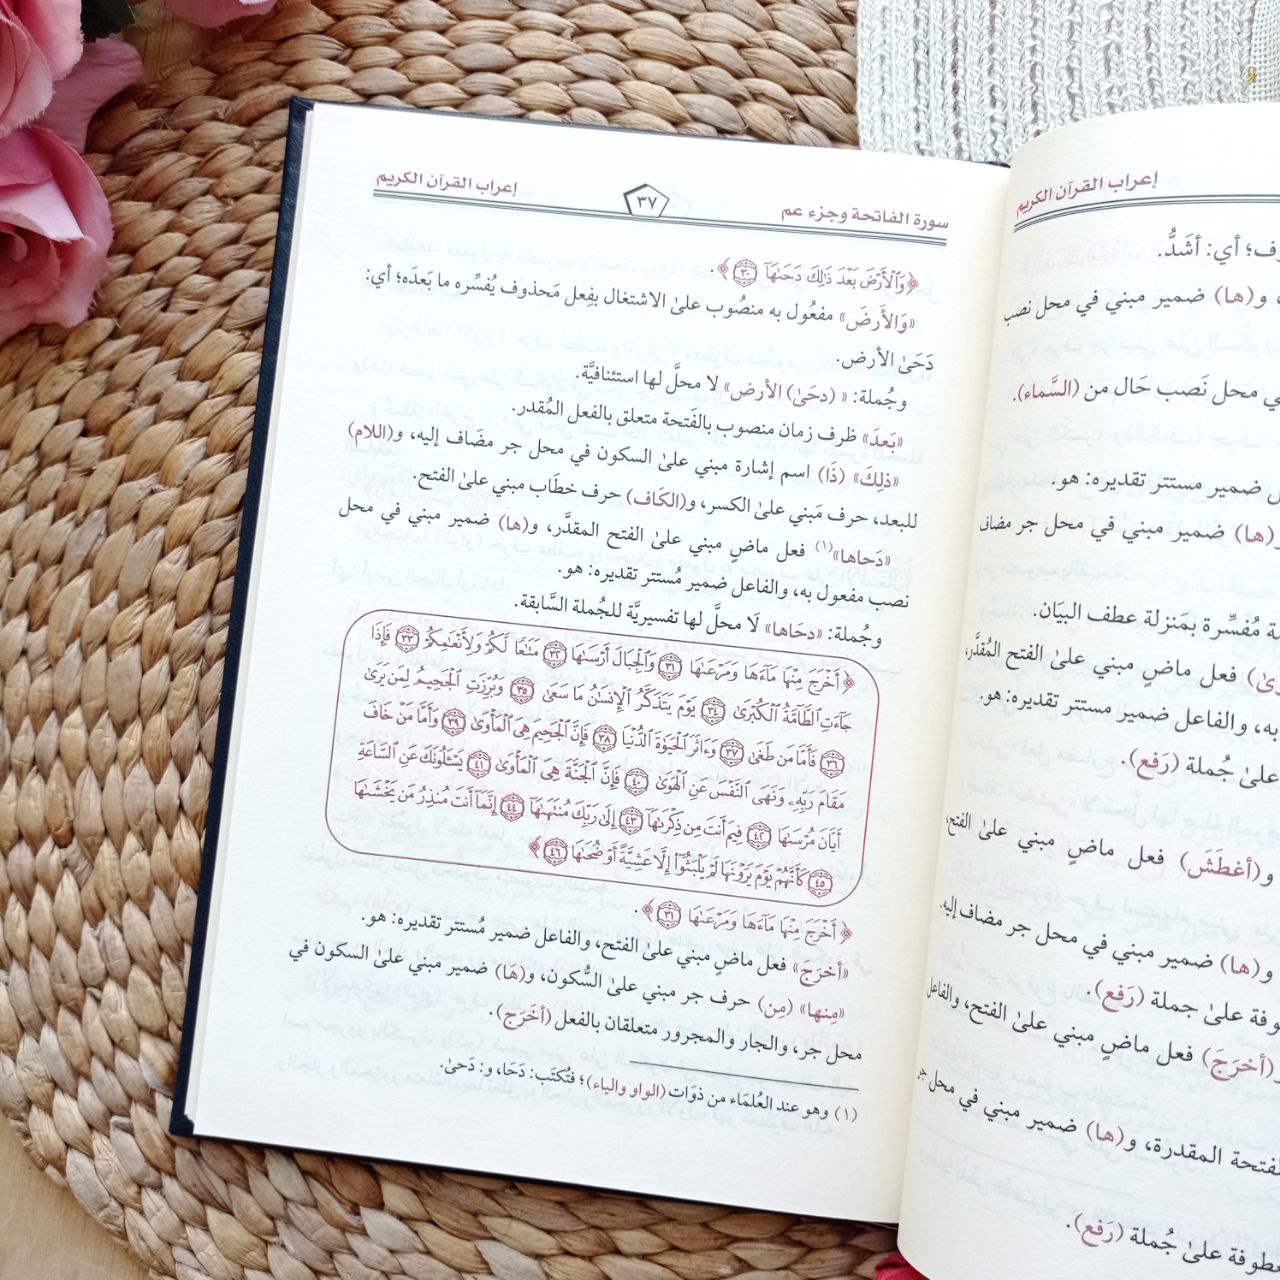 سورة الفاتحة وجزء عم ٣٧ إعراب القرآن الكريم
﴿وَٱلْأَرْضَ بَعْدَ ذَٰلِكَ دَحَىٰهَآ ٣٠﴾.
«وَالأرضَ» مفعُول به منصُوب علىٰ الاشتغال بفِعل مَحذوف يُفسِّره ما بَعدَه؛ أي:
دَحَىٰ الأرض.
وجُملة: «(دحَىٰ) الأرض» لا محلَّ لها استئنافيَّة.
«بَعدَ» ظرف زمان منصوب بالفَتحة متعلق بالفعل المُقدر.
«ذلِكَ» (ذَا) اسم إشارة مبني علىٰ السكون في محل جر مضَاف إليه، و(اللام)
للبعد، حرف مَبني علىٰ الكسر، و(الكَاف) حرف خطَاب مبني علىٰ الفتح.
«دَحاها»(١) فعل ماضٍ مبني علىٰ الفتح المقدَّر، و(ها) ضمير مبني في محل
نصب مفعول به، والفاعل ضمير مُستتر تقديره: هو.
وجُملة: «دحَاها» لَا محلَّ لها تفسيريَّة للجُملة السَّابقة.
﴿أَخْرَجَ مِنْهَا مَآءَهَا وَمَرْعَىٰهَا ٣١ وَٱلْجِبَالَ أَرْسَىٰهَا ٣٢ مَتَٰعًا لَّكُمْ وَلِأَنْعَٰمِكُمْ ٣٣ فَإِذَا
جَآءَتِ ٱلطَّآمَّةُ ٱلْكُبْرَىٰ ٣٤ يَوْمَ يَتَذَكَّرُ ٱلْإِنسَٰنُ مَا سَعَىٰ ٣٥ وَبُرِّزَتِ ٱلْجَحِيمُ لِمَن يَرَىٰ
٣٦ فَأَمَّا مَن طَغَىٰ ٣٧ وَءَاثَرَ ٱلْحَيَوٰةَ ٱلدُّنْيَا ٣٨ فَإِنَّ ٱلْجَحِيمَ هِىَ ٱلْمَأْوَىٰ ٣٩ وَأَمَّا مَنْ خَافَ
مَقَامَ رَبِّهِۦ وَنَهَى ٱلنَّفْسَ عَنِ ٱلْهَوَىٰ ٤٠ فَإِنَّ ٱلْجَنَّةَ هِىَ ٱلْمَأْوَىٰ ٤١ يَسْـَٔلُونَكَ عَنِ ٱلسَّاعَةِ
أَيَّانَ مُرْسَىٰهَا ٤٢ فِيمَ أَنتَ مِن ذِكْرَىٰهَآ ٤٣ إِلَىٰ رَبِّكَ مُنتَهَىٰهَآ ٤٤ إِنَّمَآ أَنتَ مُنذِرُ مَن يَخْشَىٰهَا
٤٥ كَأَنَّهُمْ يَوْمَ يَرَوْنَهَا لَمْ يَلْبَثُوٓا۟ إِلَّا عَشِيَّةً أَوْ ضُحَىٰهَا ٤٦﴾
﴿أَخْرَجَ مِنْهَا مَآءَهَا وَمَرْعَىٰهَا ٣١﴾.
«أخرَجَ» فعل ماضٍ مبني علىٰ الفتح، والفاعل ضمير مُستتر تقديره: هو.
«مِنها» (مِن) حرف جر مبني علىٰ السُّكون، و(هَا) ضمير مبني علىٰ السكون في
محل جر، والجار والمجرور متعلقان بالفعل (أخَرَج).
(١) وهو عند العُلمَاء من ذوَات (الواو والياء)؛ فتُكتَب: دَحَا، و: دَحىٰ.
إعراب القرآن الكريم
ف؛ أي: أشَدُّ.
و(ها) ضمير مبني في محل نصب
ي محل نَصب حَال من (السَّماء).
ضمير مستتر تقديره: هو.
(ها) ضمير مبني في محل جر مضاف
ة مُفسِّرة بمَنزلة عطف البيَان.
فعل ماضٍ مبني علىٰ الفتح المُقدَّر،
به، والفاعل ضمير مستتر تقديره: هو.
علىٰ جُملة (رَفع).
و(أغطَشَ) فعل ماضٍ مبني علىٰ الفتح،
و(ها) ضمير مبني في محل جر مضاف إليه.
وفة علىٰ جملة (رَفع).
(أخرَجَ) فعل ماضٍ مبني علىٰ الفتح، والفاعل
لفتحة المقدرة، و(ها) ضمير مبني في محل جر
عطوفة علىٰ جُملة (رَفع).